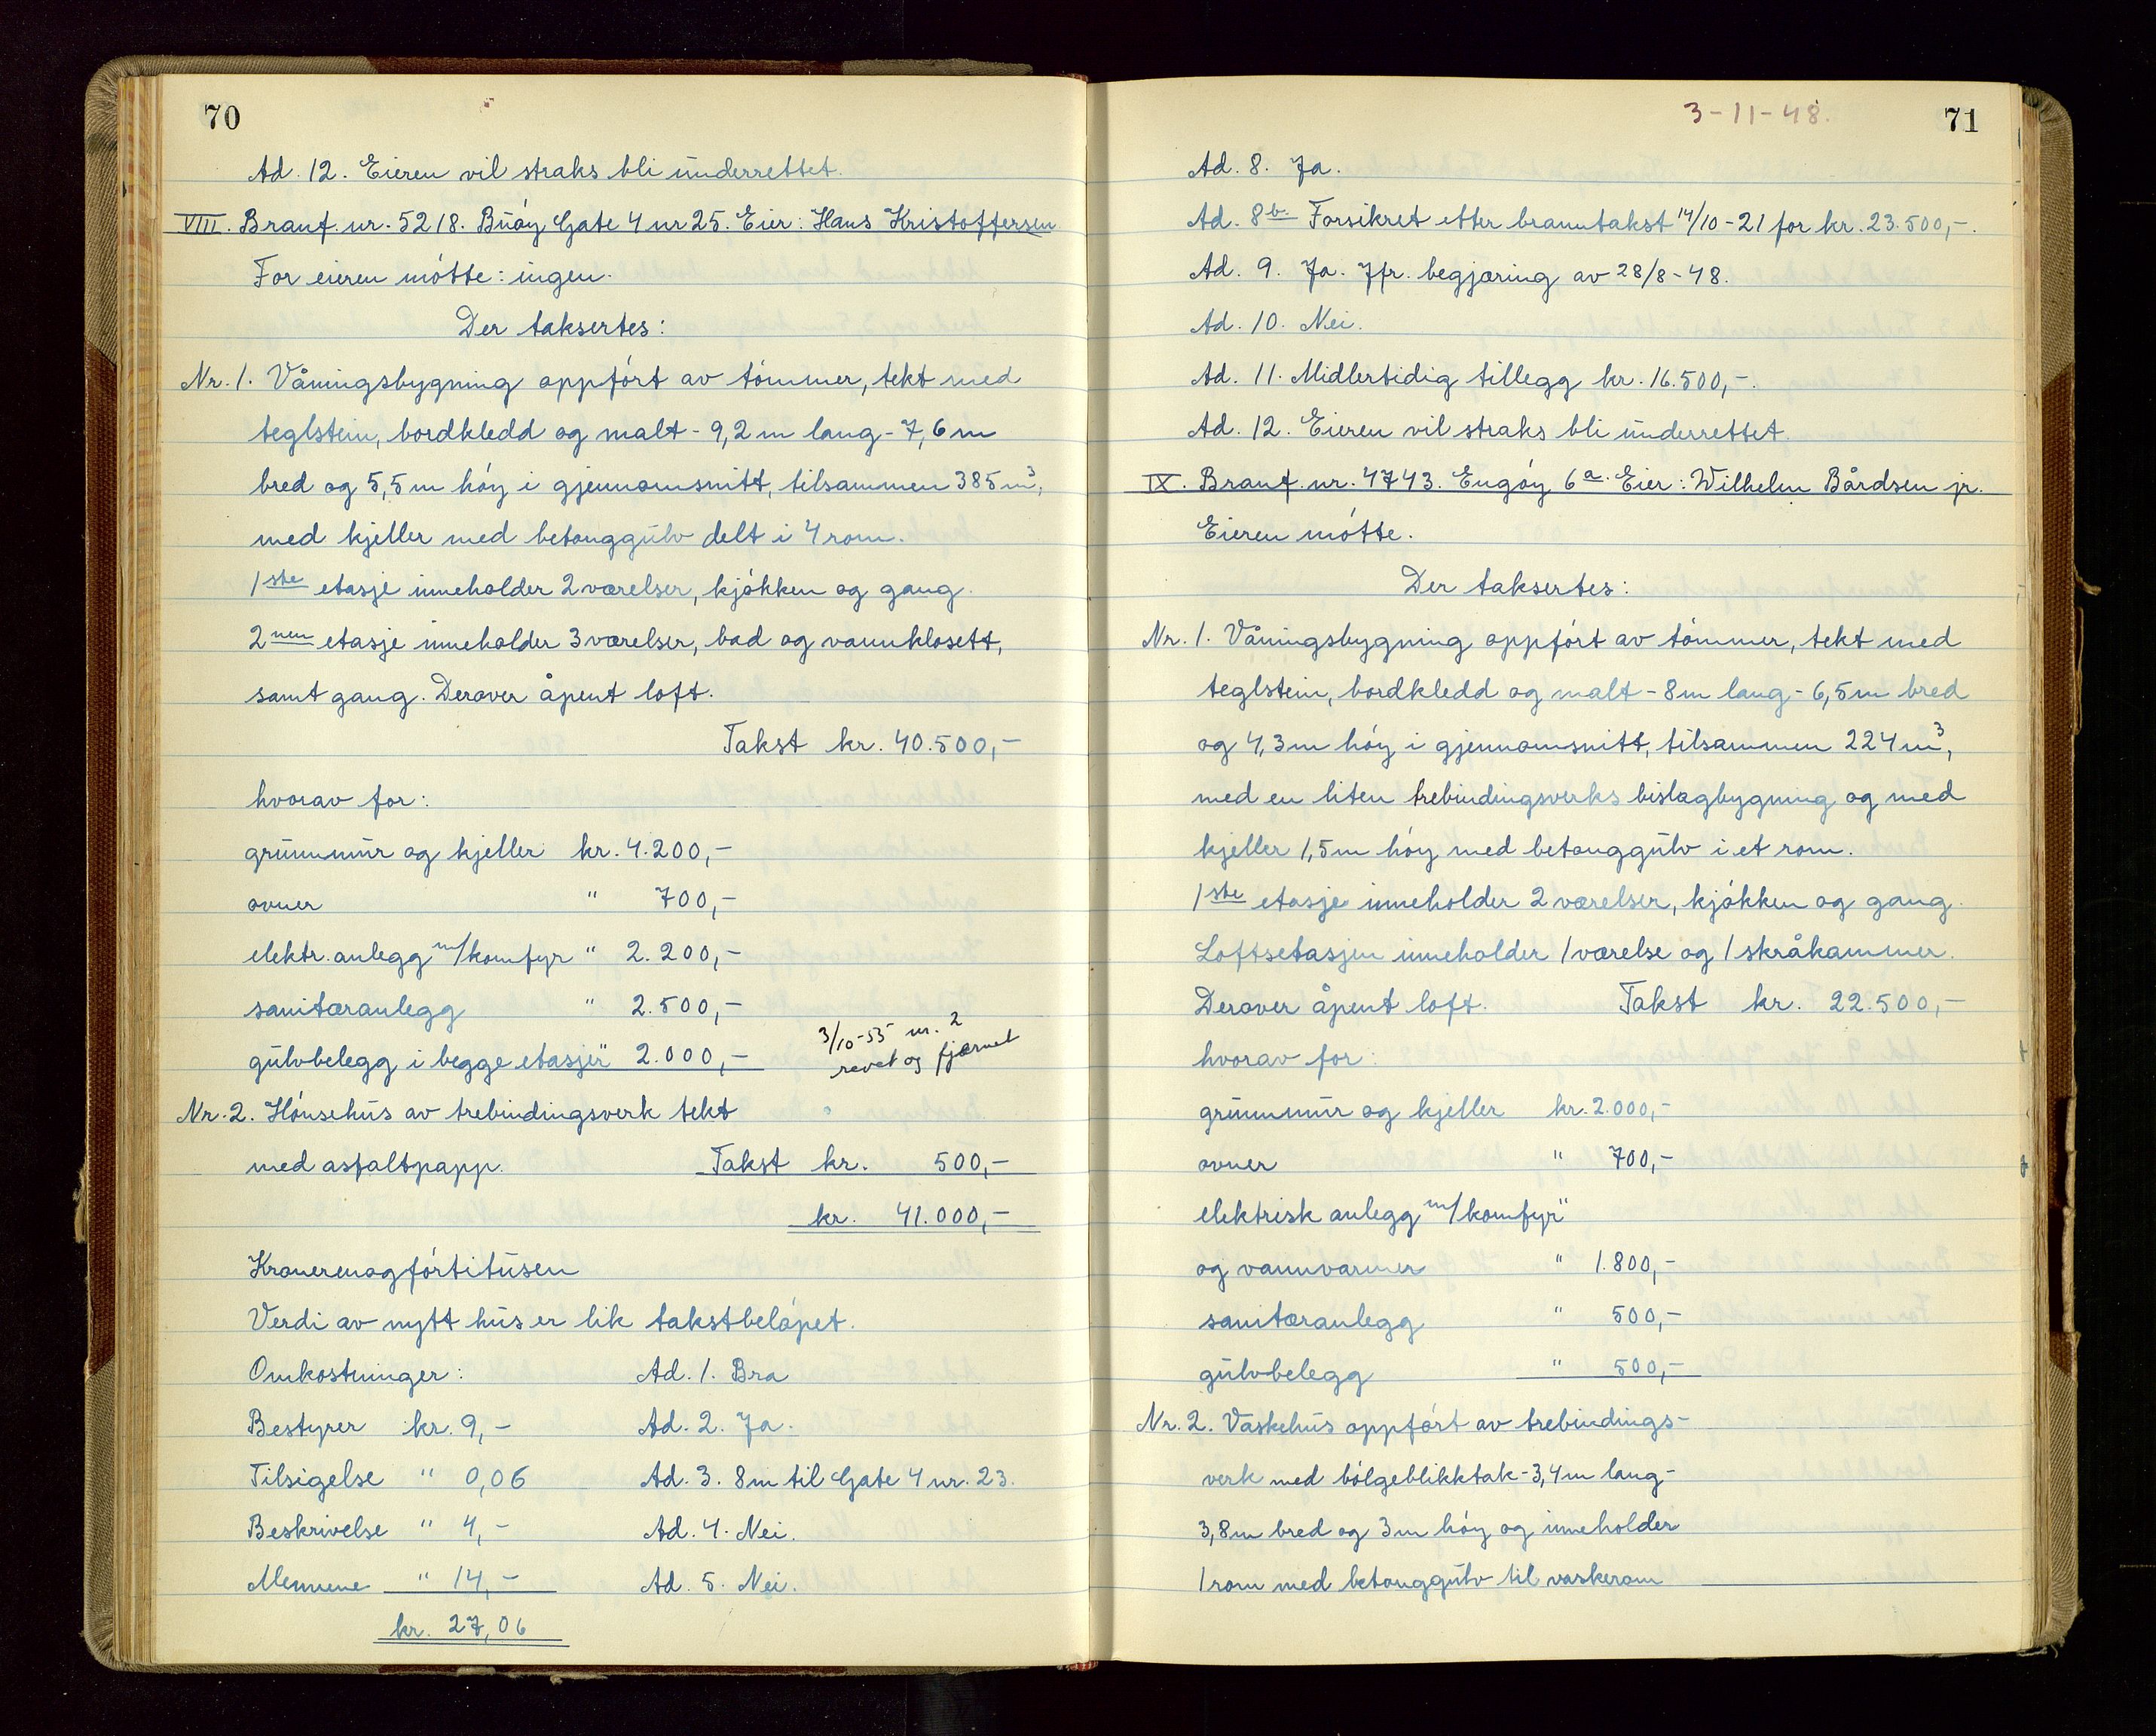 70
Ad. 12. Eieren vil straks bli underrettet.
VIII. Branf. nr. 5218. Buøy Gate 4 nr 25. Eier: Hans Kristoffersen
For eieren møtte: ingen.
Der taksertes:
Nr. 1. Våningsbygning oppført av tømmer, tekt med
teglstein, bordkledd og malt - 9,2 m lang - 7,6 m
bred og 5,5 m høy i gjennomsnitt, tilsammen 385 m³,
med kjeller med betonggulv delt i 4 rom.
1ste etasje inneholder 2 værelser, kjøkken og gang.
2nen etasje inneholder 3 værelser, bad og vannklosett,
samt gang. Derover åpent loft.
Takst kr. 40.500,-
hvorav for:
grunnmur og kjeller kr. 4.200,-
ovner " 700,-
elektr. anlegg m/komfyr " 2.200,-
sanitæranlegg " 2.500,-
gulvbelegg i begge etasjer " 2.000,-
3/10-55 nr. 2
revet og fjærnet
Nr. 2. Hønsehus av trebindingsverk tekt
med asfaltpapp. Takst kr. 500,-
kr. 41.000,-
Kranerenogførtitusen
Verdi av nytt hus er lik takstbeløpet.
Omkostninger: Ad. 1. Bra
Bestyrer kr. 9,- Ad. 2. Ja.
Tilsigelse " 0,06 Ad. 3. 8 m til Gate 4 nr. 23.
Beskrivelse " 4,- Ad. 4. Nei.
Mennene " 14,- Ad. 5. Nei.
kr. 27,06
3-11-48. 71
Ad. 8. Ja.
Ad. 8b. Forsikret etter branntakst 14/10-21 for kr. 23.500,-.
Ad. 9. Ja. Jfr. begjæring av 28/8-48.
Ad. 10. Nei.
Ad. 11. Midlertidig tillegg kr. 16.500,-.
Ad. 12. Eieren vil straks bli underrettet.
IX. Branf. nr. 4743. Engøy 6a. Eier: Wilhelm Bårdsen jr.
Eieren møtte.
Der taksertes:
Nr. 1. Våningsbygning oppført av tømmer, tekt med
teglstein, bordkledd og malt - 8 m lang - 6,5 m bred
og 4,3 m høy i gjennomsnitt, tilsammen 224 m³,
med en liten trebindingsverks bislagbygning og med
kjeller 1,5 m høy med betonggulv i et rom.
1ste etasje inneholder 2 værelser, kjøkken og gang.
Loftsetasjen inneholder 1 værelse og 1 skråkammer.
Derover åpent loft. Takst kr. 22.500,-
hvorav for:
grunnmur og kjeller kr. 2.000,-
ovner " 700,-
elektrisk anlegg m/komfyr "
og vannvarmer " 1.800,-
sanitæranlegg " 500,-
gulvbelegg " 500,-
Nr. 2. Vaskehus oppført av trebindings-
verk med bølgeblikktak - 3,4 m lang -
3,8 m bred og 3 m høy og inneholder
1 rom med betonggulv til vaskerom